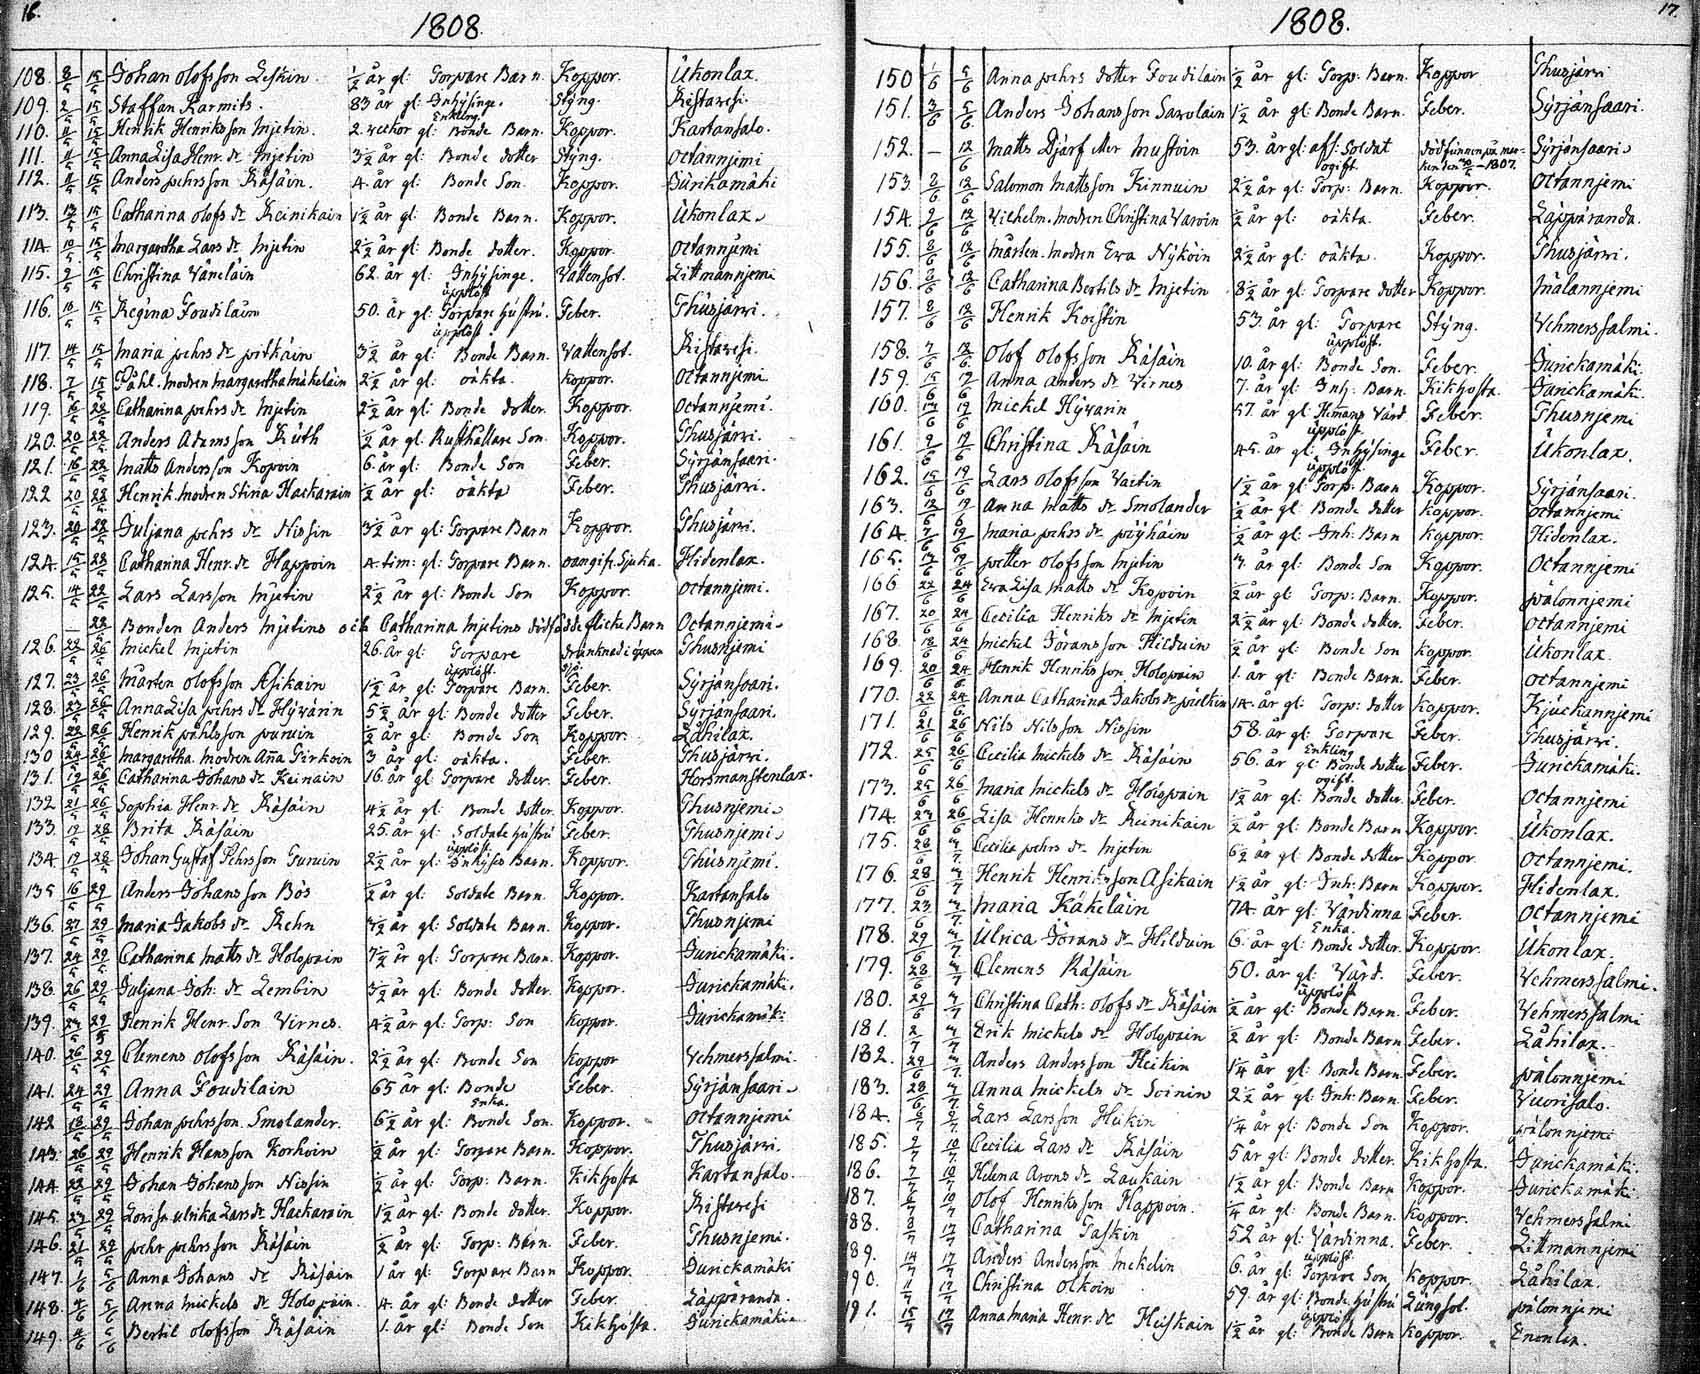 16.
1808.
108. 8/5 15/5 Johan olofsson Leskin. 1/2 år gl: Torpare Barn. Koppor. Ukonlax.
109. 2/5 15/5 Staffan Karmits. 83 år gl: Inhysinge. Enkling. Styng. Ristavesi.
110. 11/5 15/5 Henrik Henriksson Mjetin. 2. veckor gl: Bonde Barn. Koppor. Kartansalo.
111. 11/5 15/5 Anna Lisa Henr. dr Mjetin 3 1/2 år gl: Bonde dotter Styng. Octannjemi
112. 11/5 15/5 Anders pehrsson Räsäin. 4. år gl: Bonde Son Koppor. Jurikamäki
113. 13/5 15/5 Catharina olofs dr Reinikain 1 1/2 år gl: Bonde Barn. Koppor. Ukonlax.
114. 10/5 15/5 Margaretha Lars dr Mjetin 2 1/2 år gl: Bonde dotter. Koppor Octannjemi
115. 9/5 15/5 Christina Väneläin 62. år gl: Inhysinge. upplöst Vattensot. Littmannjemi
116. 10/5 15/5 Regina Toudilain 50. år gl: Torpare hustru. upplöst. Feber. Thusjärvi.
117. 14/5 15/5 Maria pehrs dr pitkäin 3 1/2 år gl: Bonde Barn. Vattensot. Ristavesi.
118. 7/5 15/5 Påhl. modren Margaretha Mäkeläin 2 1/2 år gl: oäkta. Koppor. Octannjemi
119. 16/5 22/5 Catharina pehrs dr Mjetin 2 1/2 år gl: Bonde dotter. Koppor. Octannjemi.
120. 20/5 22/5 Anders Adamsson Räth 1/2 år gl: Rusthållare Son. Koppor. Thusjärvi.
121. 16/5 22/5 Matts Andersson Kopoin 6. år gl: Bonde Son Feber. Syrjänsaari.
122 20/5 22/5 Henrik. modren Stina Hackarain 1/2 år gl: oäkta Feber. Thusjärvi.
123. 20/5 22/5 Juljana pehrs dr Nissin 3 1/2 år gl: Torpare Barn Koppor. Thusjärvi.
124. 15/5 22/5 Catharina Henr. dr Happoin 4. tim: gl: Torpare Barn. oangifn. Sjuka. Hidenlax.
125. 14/5 22/5 Lars Larsson Mjetin 2 1/2 år gl: Bonde Son Koppor. Octannjemi.
— 22/5 Bonden Anders Mjetins och Catharina Mjetins dödfödde flicke Barn Octannjemi.
126. 22/5 26/5 Mickel Mjetin 26. år gl: Torpare upplöst. drunknad i öppen sjö. Thusnjemi
127. 23/5 26/5 Mårten olofsson Asikain 1 1/2 år gl: Torpare Barn. Feber. Syrjänsaari.
128. 23/5 26/5 Anna Lisa pehrs dr Hyvärin 5 1/2 år gl: Bonde dotter Feber. Syrjänsaari.
129. 22/5 26/5 Henrik påhlsson puruin 1/2 år gl: Bonde Son Koppor. Lähilax.
130 24/5 26/5 Margaretha. modren Anna Pirkoin 3 år gl: oäkta. Feber. Thusjärvi.
131. 19/5 26/5 Catharina Johans dr Keinain 16. år gl Torpare dotter. Feber. Horsmanstenlax.
132 21/5 26/5 Sophia Henr. dr Räsäin 4 1/2 år gl: Bonde dotter. Koppor. Thusnjemi.
133. 19/5 28/5 Brita Räsäin 25. år gl: Soldate hustru upplöst Feber. Thusnjemi.
134. 17/5 28/5 Johan Gustaf Pehrsson Turuin 2 1/2 år gl: Inhyses Barn. Koppor. Thusnjemi.
135 16/5 29/5 Anders Johansson Bös 1/2 år gl: Soldate Barn. Koppor. Kartansalo
136. 27/5 29/5 Maria Jakobs dr Rehn 3 1/2 år gl: Soldate Barn. Koppor. Thusnjemi
137. 24/5 29/5 Catharina Matts dr Holopain 7 1/2 år gl: Torpare Barn. Koppor. Jurickamäki.
138. 26/5 29/5 Juljana Joh: dr Lembin 3 1/2 år gl: Bonde dotter. Koppor. Jurickamäki.
139. 23/5 29/5 Henrik Henr. Son Virnes. 4 1/2 år gl: Torp: Son Koppor. Jurickamäki
140. 26/5 29/5 Clemens olofsson Räsäin. 2 1/2 år gl: Bonde Son Koppor Vehmerssalmi.
141. 24/5 29/5 Anna Toudilain 65 år gl: Bonde Enka. Feber. Syrjänsaari.
142 18/5 29/5 Johan pehrsson Smolander. 6 1/2 år gl: Bonde Son. Koppor. Octannjemi
143. 26/5 29/5 Henrik Hansson Korhoin 1/2 år gl: Torpare Barn. Koppor. Thusjärvi.
144 22/5 29/5 Johan Johansson Nissin 1/2 år gl: Torp: Barn. Kikhosta Kartansalo.
145. 23/5 29/5 Lovisa ulrika Lars dr Hackarain 1 1/2 år gl: Bonde dotter. Koppor. Ristavesi
146. 21/5 29/5 pehr pehrsson Räsäin 1/2 år gl: Torp: Barn. Feber. Thusnjemi.
147. 1/6 5/6 Anna Johans dr Räsäin 1 år gl: Torpare Barn Koppor. Jurickamäki
148. 4/6 5/6 Anna Mickels dr Holopain. 4. år gl: Bonde dotter Feber. Läppäranda.
149. 4/6 5/6 Bertil olofsson Räsäin 1. år gl: Bonde Son Kikhosta. Jurickamäki
17.
1808.
150 1/6 5/6 Anna pehrs dotter Toudilain 1/2 år gl: Torp: Barn. Koppor Thusjärvi
151. 3/6 5/6 Anders Johansson Savolain 1 1/2 år gl: Bonde Barn. Feber. Syrjänsaari.
152. — 12/6 Matts Djärf eller Mustoin 53. år gl: aff: Soldat ogift. död funnen på marken den 1807. Syrjänsaari
153. 8/6 12/6 Salomon Mattsson Kinnuin 2 1/2 år gl: Torp: Barn. Koppor. Octannjemi
154. 9/6 12/6 Vilhelm. modren Christina Varoin 1/2 år gl: oäkta. Feber. Läppäranda.
155. 8/6 12/6 Mårten. modren Eva Nykäin 2 1/2 år gl: oäkta. Koppor. Thusjärvi.
156. 8/6 12/6 Catharina Bertils dr Mjetin 8 1/2 år gl: Torpare dotter Koppor. Mälannjemi
157. 8/6 12/6 Henrik Korstin 53. år gl: Torpare upplöst. Styng. Vehmerssalmi.
158. 7/6 12/6 Olof olofsson Räsäin 10. år gl: Bonde Son. Feber. Jurickamäki.
159. 15/6 19/6 Anna Anders dr Virnes 7. år gl: Inh: Barn. Kikhosta. Jurickamäki.
160. 17/6 19/6 Mickel Hyvärin 57. år gl Hemans Värd upplöst Feber. Thusnjemi
161. 9/6 19/6 Christina Räsäin 45. år gl: Inhysinge upplöst. Feber. Ukonlax.
162. 15/6 19/6 Lars olofsson Vaitin 1 1/2 år gl: Torp: Barn Koppor. Syrjänsaari.
163. 12/6 19/6 Anna Matts dr Smolander 1/2 år gl: Bonde dotter Koppor. Octannjemi
164. 7/6 19/6 Maria pehrs dr pöyhäin 1/2 år gl: Inh: Barn Koppor. Hidenlax.
165. 17/6 19/6 petter olofsson Mjetin 3. år gl: Bonde Son Koppor. Octannjemi
166 22/6 24/6 Eva Lisa Matts dr Kopoin 1/2 år gl Torp: Barn. Koppor. pälonnjemi
167. 20/6 24/6 Cecilia Henriks dr Mjetin 2 1/2 år gl: Bonde dotter. Feber. Octannjemi
168. 18/6 24/6 Mickel Jöransson Hilduin 1/2 år gl: Bonde Son Koppor. Ukonlax.
169. 20/6 24/6 Henrik Henriksson Holopain 1. år gl: Bonde Barn. Feber. Octannjemi
170. 22/6 24/6 Anna Catharina Jakobs dr pietikin 14. år gl: Torp: dotter Koppor. Kjuckannjemi
171. 21/6 26/6 Nils Nilsson Nissin 58. år gl: Torpare Enkling Feber. Thusjärvi.
172. 25/6 26/6 Cecilia Mickels dr Räsäin 56. år gl: Bonde dotter ogift. Feber. Jurickamäki.
173. 25/6 26/6 Maria Mickels dr Holopain 1 1/2 år gl: Bonde dotter. Feber. Octannjemi
174. 23/6 26/6 Lisa Henriks dr Reinikain 1/2 år gl: Bonde Barn Koppor. Ukonlax.
175. 28/6 3/7 Cecilia pehrs dr Mjetin 6 1/2 år gl: Bonde dotter Koppor Octannjemi.
176. 28/6 3/7 Henrik Henriksson Asikain 1 1/2 år gl: Inh: Barn Koppor. Hidenlax.
177. 23/6 3/7 Maria Käkeläin 74. år gl: Värdinna Enka. Feber. Octannjemi
178. 29/6 3/7 Ulrica Jörans dr Hilduin 6. år gl: Bonde dotter. Koppor. Ukonlax.
179. 28/6 3/7 Clemens Räsäin 50. år gl: Värd. upplöst Feber. Vehmerssalmi.
180. 29/6 3/7 Christina Cath: olofs dr Räsäin 1/2 år gl: Bonde Barn. Feber. Vehmerssalmi
181. 2/7 3/7 Erik Mickels dr Holopain 1/2 år gl: Bonde Barn. Feber. Lähilax.
182. 29/6 3/7 Anders Andersson Heikin 1/4 år gl: Bonde Barn. Feber. pälonnjemi
183. 28/6 3/7 Anna Mickels dr Soinin 2 1/2 år gl: Inh: Barn. Feber. Vuorisalo.
184. Lars Larsson Heikin 1/4 år gl: Bonde Son Koppor. pälonnjemi
185. 9/7 10/7 Cecilia Lars dr Räsäin 5 år gl: Bonde dotter. Kikhosta. Jurickamäki.
186. 7/7 10/7 Helena Arons dr Laukain 1 1/2 år gl: Bonde Barn Koppor. Jurickamäki
187. 6/7 10/7 Olof Henriksson Happoin. 1/4 år gl: Bonde Barn. Koppor. Vehmerssalmi
188. 8/7 17/7 Catharina Taskin 52 år gl: Värdinna. upplöst Feber. Littmannjemi
189. 14/7 17/7 Anders Andersson Mekelin 6. år gl: Torpare Son Koppor. Lähilax.
190. 11/7 17/7 Christina Olkoin 59. år gl: Bonde hustru upplöst Lungsot. pälonnjemi
191. 15/7 17/7 Anna Maria Henr. dr Heiskain 1 1/2 år gl: Bonde Barn Koppor. Enonlax.